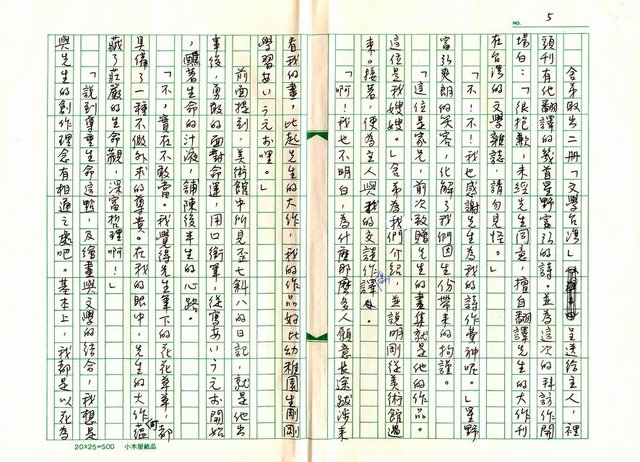 NO. 5
舍弟取出二冊「文學台灣」呈送給主人，裡
頭刊有他翻譯的幾首星野富弘的詩。並為這次的拜訪作開
場白：「很抱歉，未經先生同意，擅自翻譯先生的大作刊
在台灣的文學雜誌，請勿見怪。」
「不！不！我也感謝先生為我的詩作費神呢。」星野
富弘爽朗的笑容，化解了我們因生份帶來的拘謹。
「這位是家兄，前次敬贈先生的畫集就是他的作品。
這位是我嫂嫂。」舍弟為我們介紹，並說明剛從美術館過
來。接著，便為主人與我的交談作傳譯。
「啊！我也不明白，為什麼那麼多人願意長途跋涉來
看我的畫，比起先生的大作，我的作品好比幼稚園生剛剛
學習あいうえお哩。」
前面提到，美術館中所見歪七斜八的日記，就是他出
事後，勇敢的面對命運，用口銜筆，從寫あいうえお開始
，醮著生命的汁液，鋪陳後半生的心路。
「不，實在不敢當。我覺得先生筆下的花花草草，都
具備了一種不假外求的尊貴。在我的眼中，先生的大作蘊
藏了莊嚴的生命觀，深富哲理啊！」
「說到尊重生命這點，及繪畫與文學的結合，我想是
與先生的創作理念有相通之處吧。基本上，我都是以花為
20×25=500 小木屋紙品